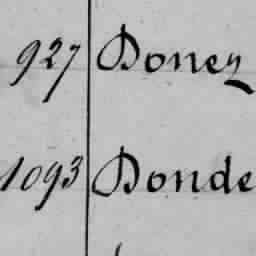 927 Doney
1093 Donde